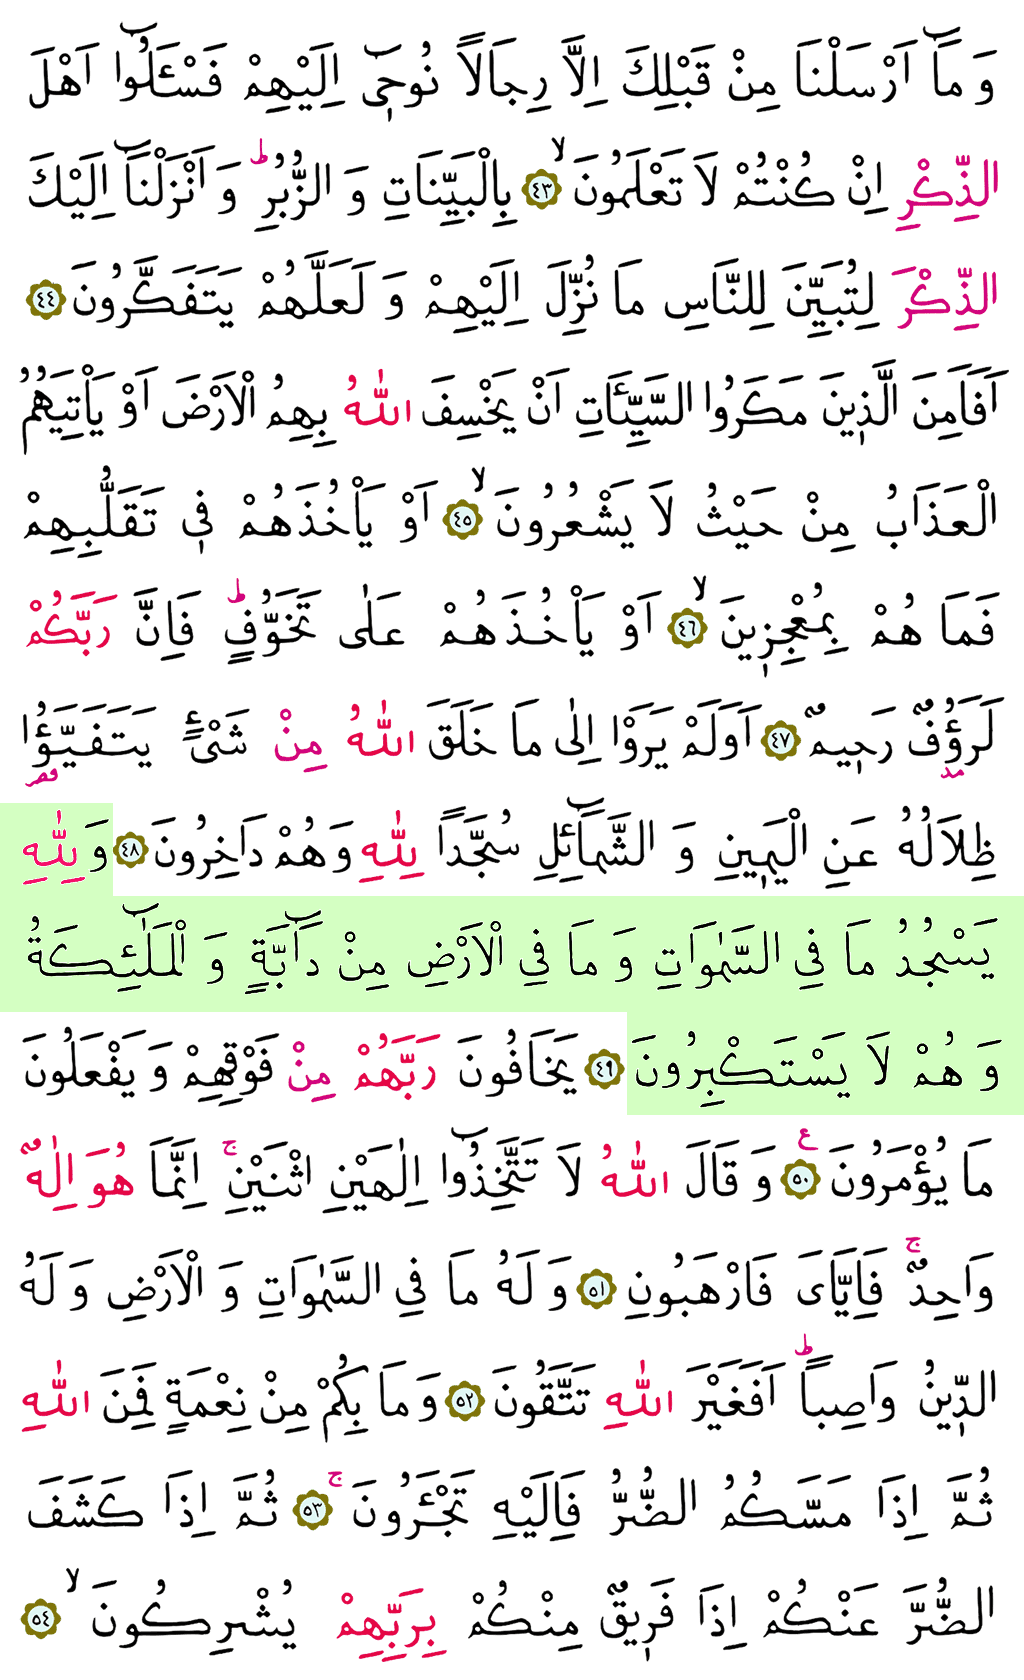 وَ مَآ اَرْسَلْنَا مِنْ قَبْلِكَ اِلَّا رِجَالاً نُوحٖٓى اِلَيْهِمْ فَسْـَٔلُٓوا اَهْلَ
الذِّكْرِ اِنْ كُنْتُمْ لَا تَعْلَمُونَۙ ﴿٤٣﴾ بِالْبَيِّنَاتِ وَ الزُّبُرِؕ وَ اَنْزَلْنَٓا اِلَيْكَ
الذِّكْرَ لِتُبَيِّنَ لِلنَّاسِ مَا نُزِّلَ اِلَيْهِمْ وَ لَعَلَّهُمْ يَتَفَكَّرُونَ ﴿٤٤﴾
اَفَاَمِنَ الَّذٖينَ مَكَرُوا السَّيِّـَٔاتِ اَنْ يَخْسِفَ اللّٰهُ بِهِمُ الْاَرْضَ اَوْ يَاْتِيَهُمُ
الْعَذَابُ مِنْ حَيْثُ لَا يَشْعُرُونَۙ ﴿٤٥﴾ اَوْ يَاْخُذَهُمْ فٖى تَقَلُّبِهِمْ
فَمَا هُمْ بِمُعْجِزٖينَۙ ﴿٤٦﴾ اَوْ يَاْخُذَهُمْ عَلٰى تَخَوُّفٍؕ فَاِنَّ رَبَّكُمْ
لَرَؤُفٌ رَحٖيمٌ ﴿٤٧﴾ اَوَلَمْ يَرَوْا اِلٰى مَا خَلَقَ اللّٰهُ مِنْ شَىْءٍ يَتَفَيَّؤُا
مد قصر
ظِلَالُهُ عَنِ الْيَمٖينِ وَ الشَّمَٓائِلِ سُجَّداً لِلّٰهِ وَهُمْ دَاخِرُونَ ﴿٤٨﴾ وَ لِلّٰهِ
يَسْجُدُ مَا فِى السَّمٰوَاتِ وَ مَا فِى الْاَرْضِ مِنْ دَٓابَّةٍ وَ الْمَلٰٓئِكَةُ
وَ هُمْ لَا يَسْتَكْبِرُونَ ﴿٤٩﴾ يَخَافُونَ رَبَّهُمْ مِنْ فَوْقِهِمْ وَ يَفْعَلُونَ
مَا يُؤْمَرُونَ ﴿٥٠﴾ ع وَ قَالَ اللّٰهُ لَا تَتَّخِذُٓوا اِلٰهَيْنِ اثْنَيْنِۚ اِنَّمَا هُوَ اِلٰهٌ
وَاحِدٌۚ فَاِيَّاىَ فَارْهَبُونِ ﴿٥١﴾ وَ لَهُ مَا فِى السَّمٰوَاتِ وَ الْاَرْضِ وَ لَهُ
الدّٖينُ وَاصِباًؕ اَفَغَيْرَ اللّٰهِ تَتَّقُونَ ﴿٥٢﴾ وَ مَا بِكُمْ مِنْ نِعْمَةٍ فَمِنَ اللّٰهِ
ثُمَّ اِذَا مَسَّكُمُ الضُّرُّ فَاِلَيْهِ تَجْـَٔرُونَۚ ﴿٥٣﴾ ثُمَّ اِذَا كَشَفَ
الضُّرَّ عَنْكُمْ اِذَا فَرٖيقٌ مِنْكُمْ بِرَبِّهِمْ يُشْرِكُونَۙ ﴿٥٤﴾